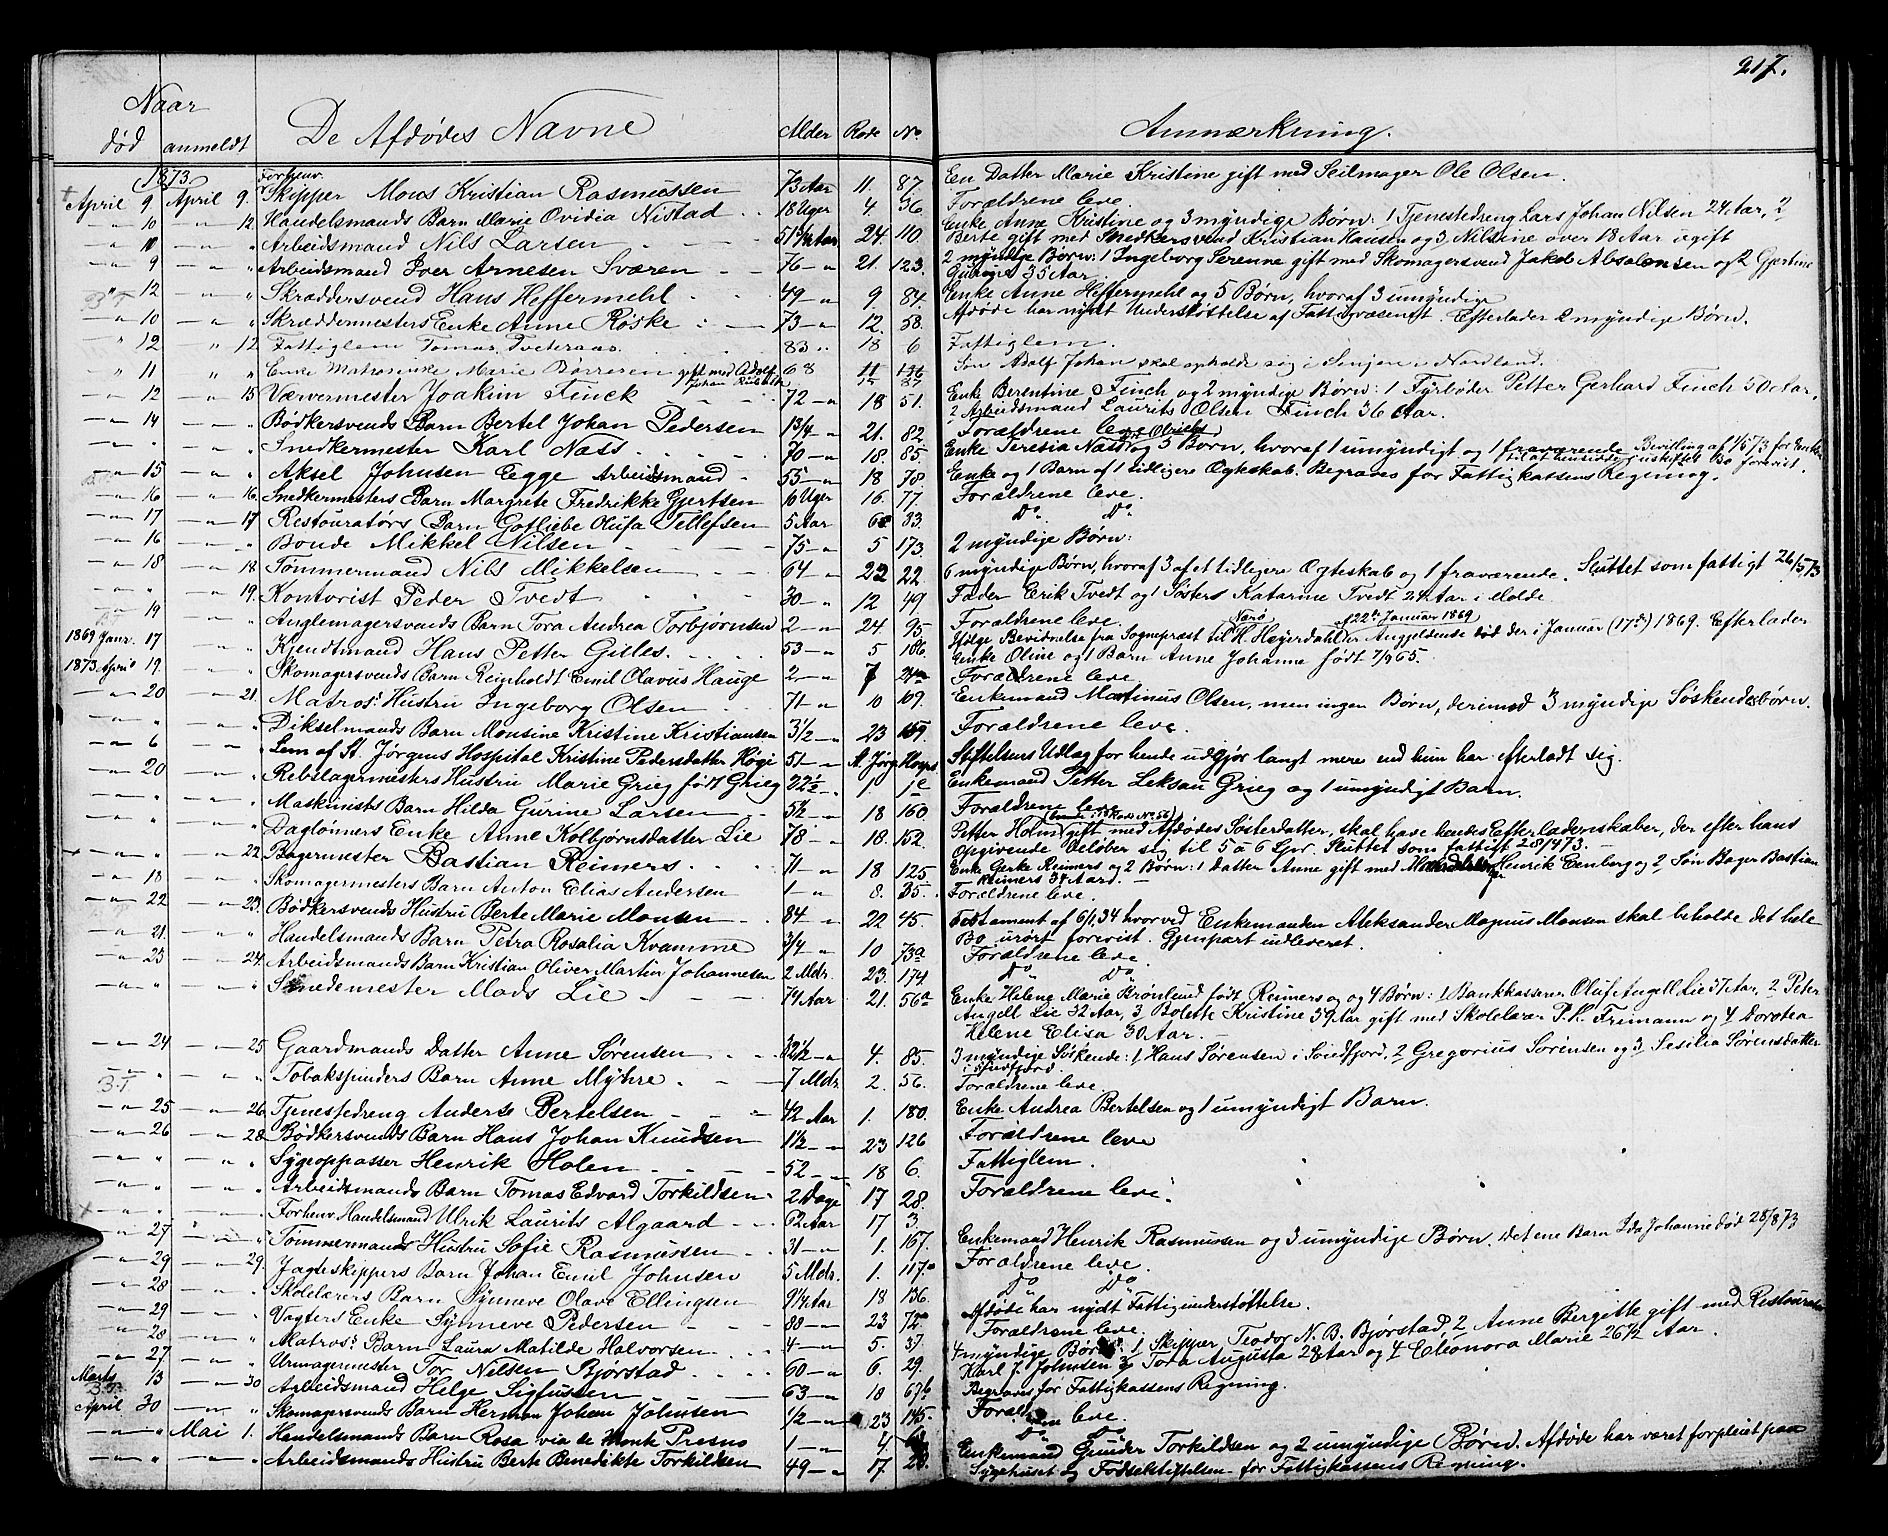 217.
Naar
død anmeldt De Afdødes Navne Alder Rode No. Anmærkning.
1873. Forhenv.
April 9. April 9. Skipper Mons Kristian Rasmussen 73 Aar 11. 87. En Datter Marie Kristine gift med Seilmager Ole Olsen.
" 10 " 12. Handelsmands Barn Marie Ovidia Nistad 18 Uger 4. 36. Forældrene leve.
" 10 " " Arbeidsmand Nils Larsen 51 Aar 24. 110. Enke Anne Kristine og 3 myndige Børn: 1 Tjenestedreng Lars Johan Nilsen 24 Aar, 2
Berte gift med Snedkersvend Kristian Hansen og 3 Nilsine over 18 Aar ugift
" 9 " " Arbeidsmand Iver Arnesen Sværen 76 " 21. 123. 2 myndige Børn: 1 Ingeborg Serenne gift med Skomagersvend Jakob Absalonsen og 2 Gjertine
35 Aar.
" 12 " " Skræddersvend Hans Heffermehl 49 " 9 84. Enke Anne Heffermehl og 5 Børn, hvoraf 3 umyndige
" 10 " " Skræddermesters Enke Anne Røske 73 " 12. 58. Afdøde har nydt Understøttelse af Fattigvæsenet. Efterlader 2 myndige Børn.
" 12 " 12. Fattiglem Tomas Tveteraas 83 " 18 6 Fattiglem.
" 11 " " Enke Marie gift med Adolf Johan 68 11 Søn Adolf Johan skal opholde sig i Senjen i Nordland.
" 12 " 15 Værvermester Joakim Finck 72 " 18 51. Enke Berentine Finch og 2 myndige Børn: 1 Fyrbøder Petter Gerhard Finch 50 Aar,
2 Arbeidsmand Laurits Olsen Finch 36 Aar.
" 14 " " Bødkersvends Barn Bertel Johan Pedersen 1 3/4 " 21. 82 Forældrene leve
" " " " Snedkermester Karl Næss 70 " 18. 85. Enke Teresia Næss og 5 Børn, hvoraf 1 umyndigt og 1 fraværende. Bevilling af 1/5 73 for Enken
til at hensidde i uskiftet Bo forevist.
" 15 " " Aksel Johnsen Egge Arbeidsmand 55 " 18 78. Enke og 1 Barn af 1 tidligere Ægteskab. Begraves for Fattigkassens Regning.
" 16 " 16. Snedkermesters Barn Margrete Fredrikke Gjertsen 10 Uger 16. 77. Forældrene leve.
" 17 " 17. Restouratørs Barn Gotliebe Olufa Tellefsen 5 Aar 6 83. Do. Do.
" 16 " " Bonde Mikkel Nilsen 75 " 5 173. 2 myndige Børn:
" 18 " 18. Tømmermand Nils Mikkelsen 64 " 22 22. 6 myndige Børn, hvoraf 3 af et tidligere Ægteskab og 1 fraværende. Sluttet som fattigt 26/5 73
" " " 19. Kontorist Peder Tvedt 30 " 12 49. Fader Erik Tvedt og 1 Søster Katarine Tvedt 24 Aar i Molde
" 19 " " Barn Tora Andrea Torbjørnsen 2 " 24. 95. Forældrene leve.
1869 Janr. 17 " " Kjendtmand Hans Petter Gilles. 53 " 5 186 Ifølge Bevidnelse fra Sognepræst til Tarø H. Heyerdahl af 22de Januar 1869 er Angjeldende død der i Januar (17de) 1869. Efterlader
Enke Oline og 1 Barn Anne Johanne født 7/9 65.
1873 April 19 " " Skomagersvends Barn Reinholdt Emil Olavus Hauge 2 " 7 Forældrene leve.
" 20 " 21. Matros' Hustru Ingeborg Olsen 71 " 10 109. Enkemand Martinus Olsen, men ingen Børn, derimod 3 myndige Søskendebørn.
" " " " Dikselmands Barn Monsine Kristine Kristiansen 3 1/2 " 23 Forældrene leve.
" 6 " " Lem af St. Jørgens Hospital Kristine Pedersdatter Høgi 51 " St. Jørg. Hosp. Stiftelsens Udlæg for hende udgjør langt mere end hun har efterladt sig.
" 20 " " Rebslagermesters Hustru Marie Grieg født Grieg 22 1/2 " 1. 1c Enkemand Petter Leksau Grieg og 1 umyndigt Barn.
" " " " Maskinists Barn Hilda Gurine Larsen 5 1/2 " 18 160. Forældrene leve.
" " " " Dagløners Enke Anne Kolbjørnsdatter Lie 78 " 18. 152. Petter Holm gift med Afdødes Søsterdatter, skal have hendes Efterladenskaber, der efter hans
Opgivende beløber sig til 5 à 6 Spr. Sluttet som fattigt 28/4 73.
" " " 22. Bagermester Bastian Reimers. 71 " 18 125 Enke Gerke Reimers og 2 Børn: 1 Datter Anne gift med Henrik Eenberg og 2 Søn Bager Bastian
Reimers 37 Aar.
" 18 " " Skomagermesters Barn Anton Elias Andersen 1 " 8. 35. Forældrene leve.
" 22 " 23. Bødkersvends Hustru Berte Marie Monsen 84 " 22 45. Testament af 6/1 34 hvorved Enkemanden Aleksander Magnus Monsen skal beholde det hele
Bo urørt forevist. Gjenpart udleveret.
" 21. " " Handelsmands Barn Petra Rosalia Kvamme 3/4 " 10 73a Forældrene leve.
" 23 " 24. Arbeidsmands Barn Kristian Oliver Martin Johannesen 2 Mdr. 23. 174 Do. Do.
" " " " Smedemester Mads Lie 74 Aar 21. 56a Enke Helene Marie Brønlund født Reimers og 4 Børn: 1 Bankkasserer Oluf Angell Lie 37 Aar, 2 Peter
Angell Lie 32 Aar, 3 Bolette Kristine 39 Aar gift med Skolelærer P. H. Frimann og 4 Dorotea
Helene Elisa 30 Aar.
" 24 " 25. Gaardmands Datter Anne Sørensen 32 1/2 " 4. 85. 3 myndige Søskende: 1 Hans Sørensen i Søndfjord, 2 Gregorius Sørensen og 3 Sesilia Sørensdatter
i Søndfjord.
" " " " Tobakspinders Barn Anne Myhre. 7 Mdr. 2. 56. Forældrene leve.
" 25 " 26. Tjenestedreng Anders Bertelsen 42 Aar 1. 180. Enke Andrea Bertelsen og 1 umyndigt Barn.
" 26 " 28. Bødkersvends Barn Hans Johan Knudsen 1 1/2 " 23 126 Forældrene leve
" " " " Sygeopasser Henrik Holen 52 " 18 6. Fattiglem.
" " " " Arbeidsmands Barn Tomas Edvard Torkildsen 2 Dage 17 28. Forældrene leve.
" " " " Forhenv. Handelsmand Ulrik Laurits Algaard 62 Aar 17 3.
" 27 " " Tømmermands Hustru Sofie Rasmussen 31 " 1. 167. Enkemand Henrik Rasmussen og 3 umyndige Børn. det ene Barn Ida Johanne død 28/8 73
" 29 " 29. Jagteskippers Barn Johan Emil Johnsen 5 Mdr. 1. 117a Forældrene leve.
" 28 " " Skolelærers Barn Synneve Olave Ellingsen 9 1/4 Aar 18 136. Do. Do.
" 29 " " Vægters Enke Synneve Pedersen 88 " 23 72 Afdøde har nydt Fattigunderstøttelse.
" 28 " " Matros' Barn Laura Matilde Halvorsen 4 " 5. 37. Forældrene leve.
" 27 " " Urmagermester Tor Nilsen Bjørstad 60 " 6. 29. 4 myndige Børn: 1 Skipper Teodor N. B. Bjørstad, 2 Anne Bergitte gift med Restouratør
Karl J. Johnsen 3 Tora Augusta 28 Aar og 4 Eleonora Marie 26 1/2 Aar.
Marts 13 " 30 Arbeidsmand Helge Sigfussen 63 " 18 67b Begraves for Fattigkassens Regning.
April 30 " " Skomagersvends Barn Herman Johan Johnsen 1/2 " 23 145. Forældrene leve.
" " Mai 1. Handelsmands Barn Rosa via de Monk Presno 1 " 4. Do. Do.
" " " " Arbeidsmands Hustru Berte Benedikte Torkildsen 49 " 17 28. Enkemand Gunder Torkildsen og 2 umyndige Børn. Afdøde har været forpleiet paa
Sygehuset og Fødselsstiftelsen for Fattigkassens Regning.